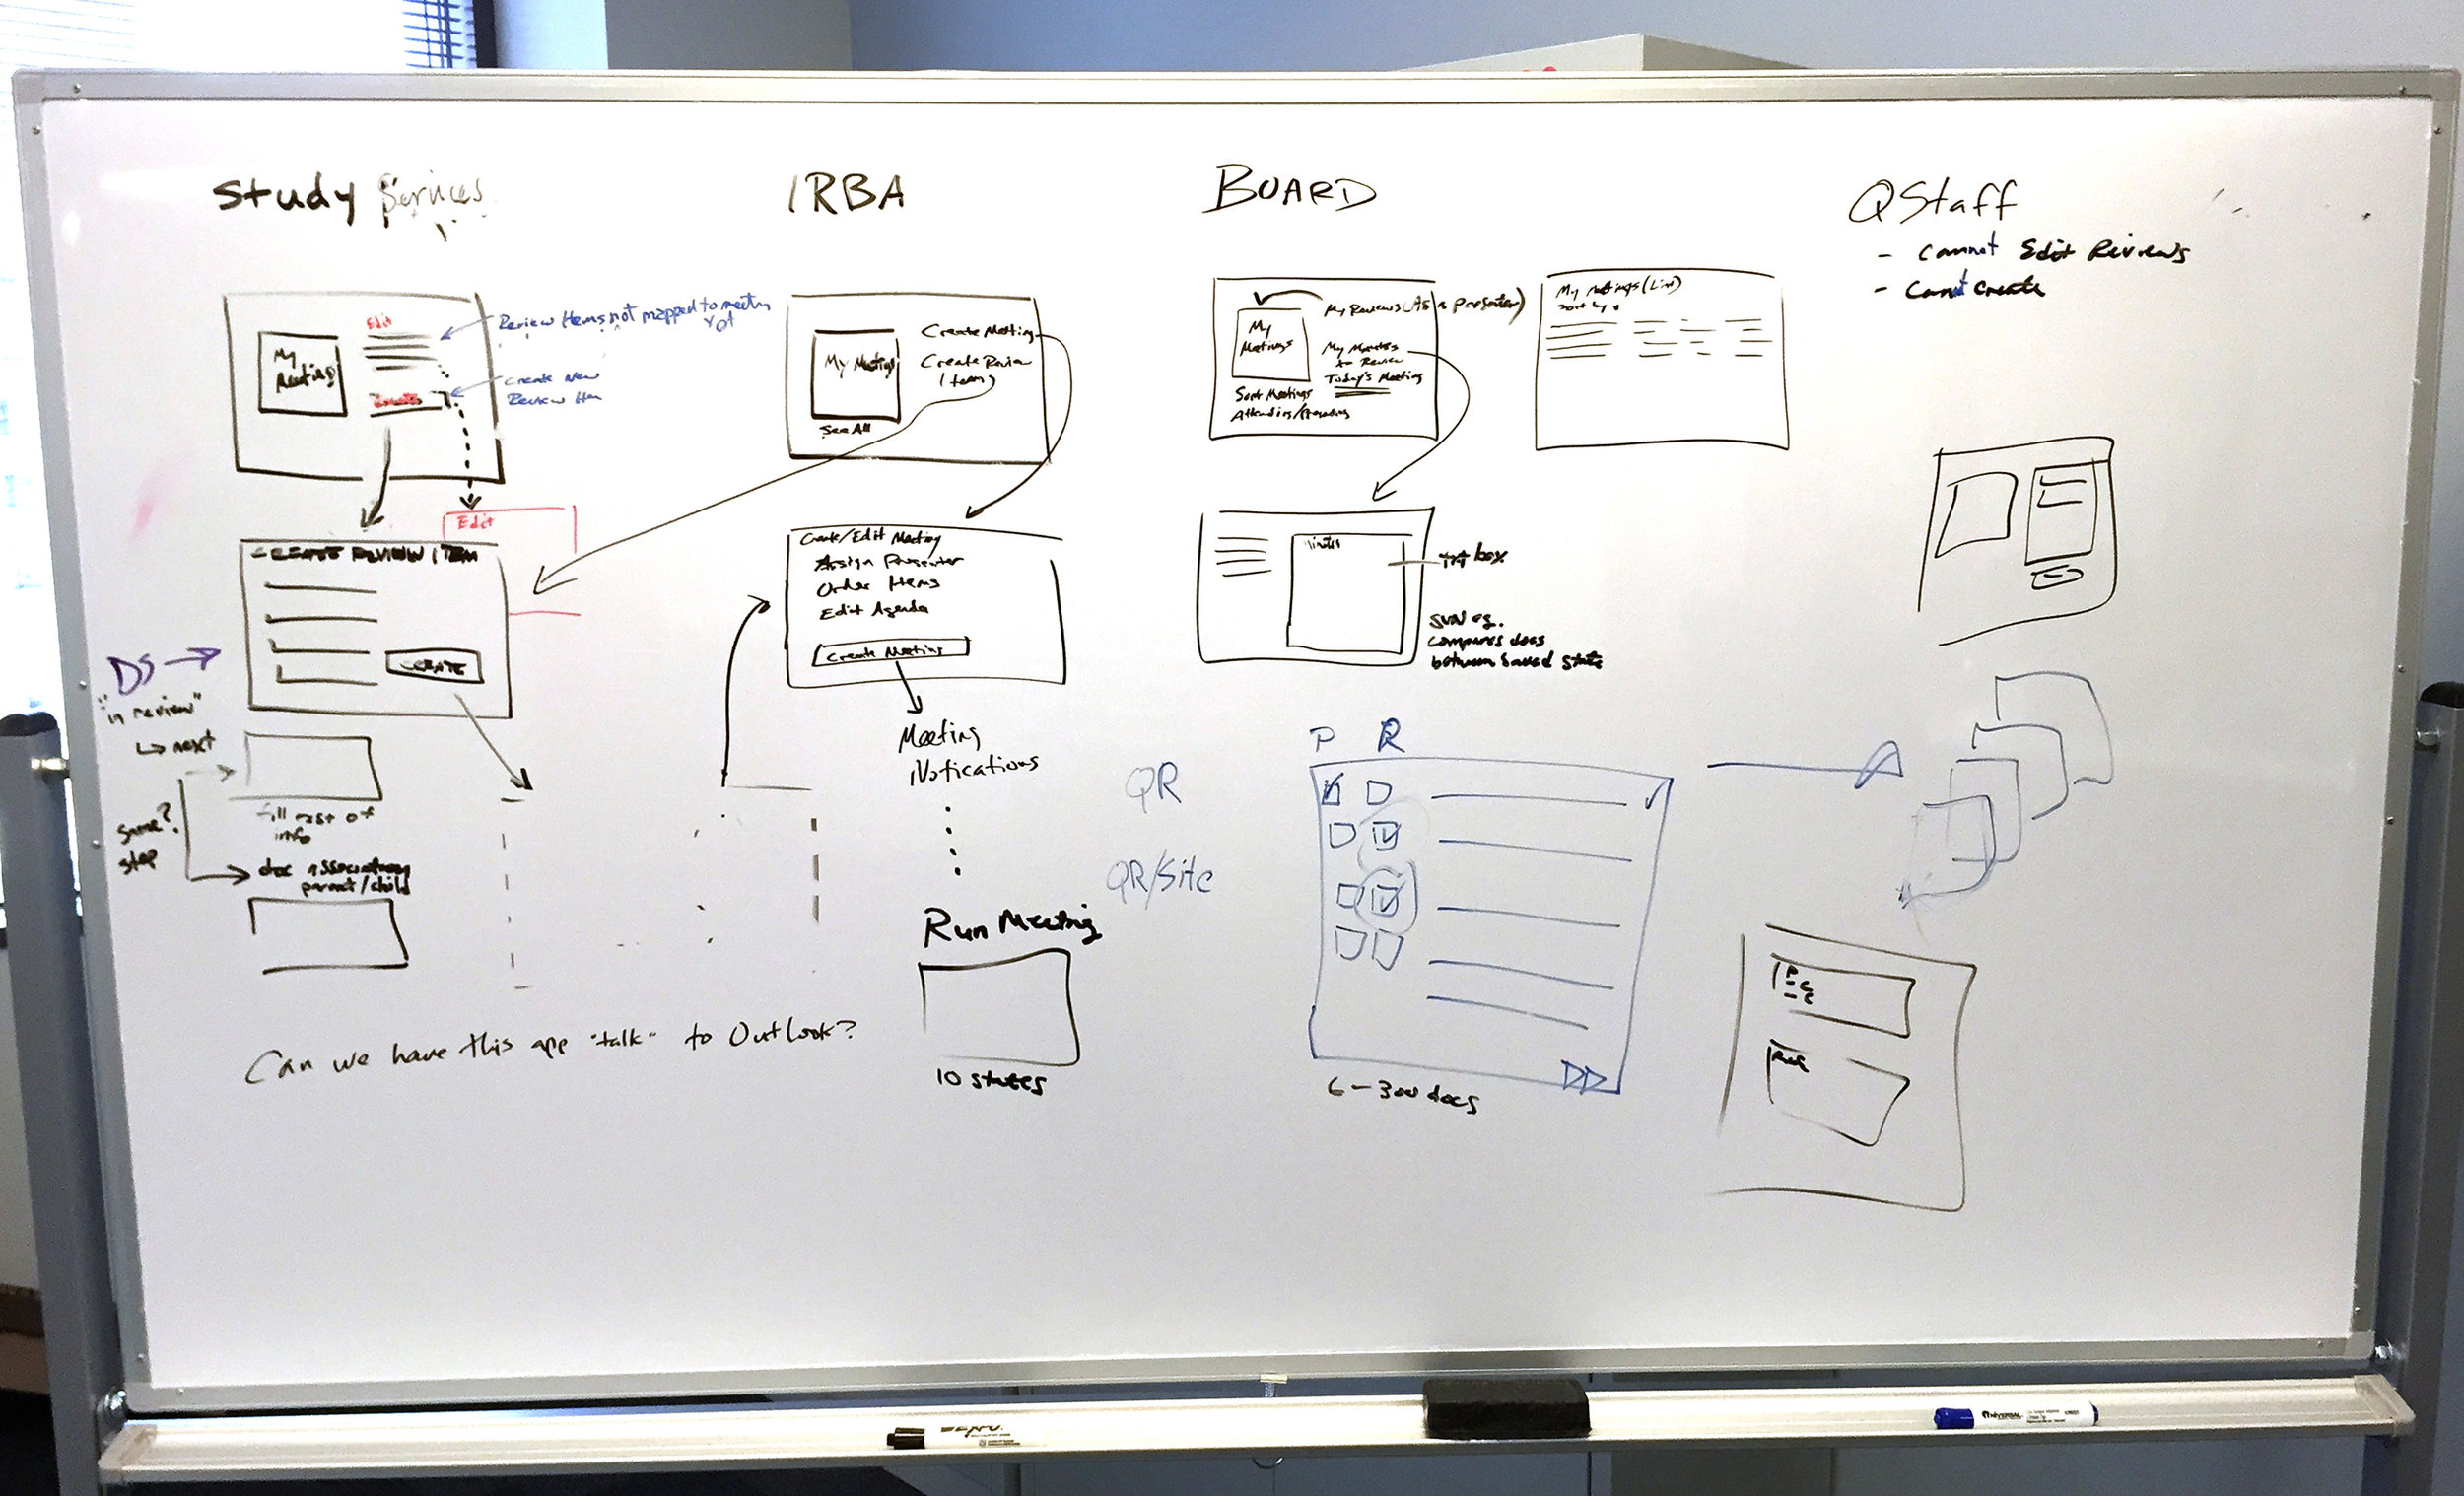 Study Services
Edit
My
Meetings
Review Items not mapped to meeting
yet
Create New
Review Item
Edit
CREATE REVIEW ITEM
CREATE
DS
"in review"
next
fill rest of
info
same?
step
doc
parent/child
Can we have this app "talk" to Outlook?
IRBA
My Meetings
See All
Create Meeting
Create Review
Item
Create/Edit Meeting
Assign Presenter
Order Items
Edit Agenda
Create Meeting
Meeting
Notifications
Run Meeting
10 states
BOARD
My Reviews (As a presenter)
My
Meetings
My Minutes
to Review
Today's Meeting
Sort Meetings
Attending/Presenting
My Meetings (List)
Sort by
Minutes
txt box
SVN eg.
compares docs
between saved state
QR
QR/Site
P R
6-300 docs
QStaff
- Cannot Edit Reviews
- Cannot Create
P
- C
- C